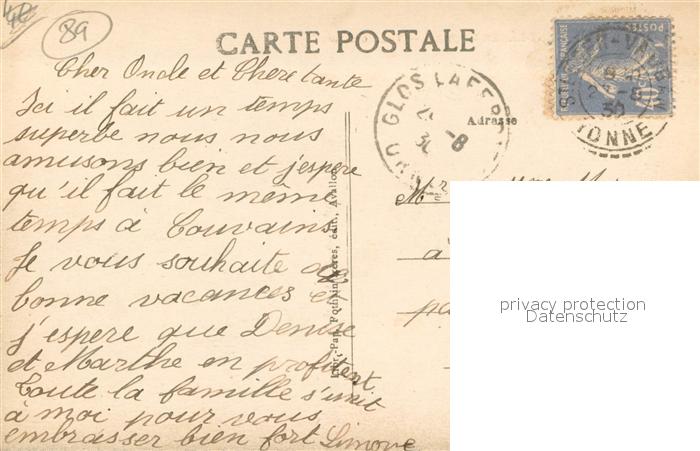 89
CARTE POSTALE
Cher Oncle et Chere tante
Ici il fait un temps
superbe nous nous
amusons bien et j'espere
qu'il fait le même
temps à Couvains
Je vous souhaite de
bonne vacances et
j'espere que Denise
et Marthe en profitent
Toute la famille s'unit
à moi pour vous
embrasser bien fort Simone
Adresse
M
à
pa
GLOS LA FERR
8
YONNE
privacy protection
Datenschutz